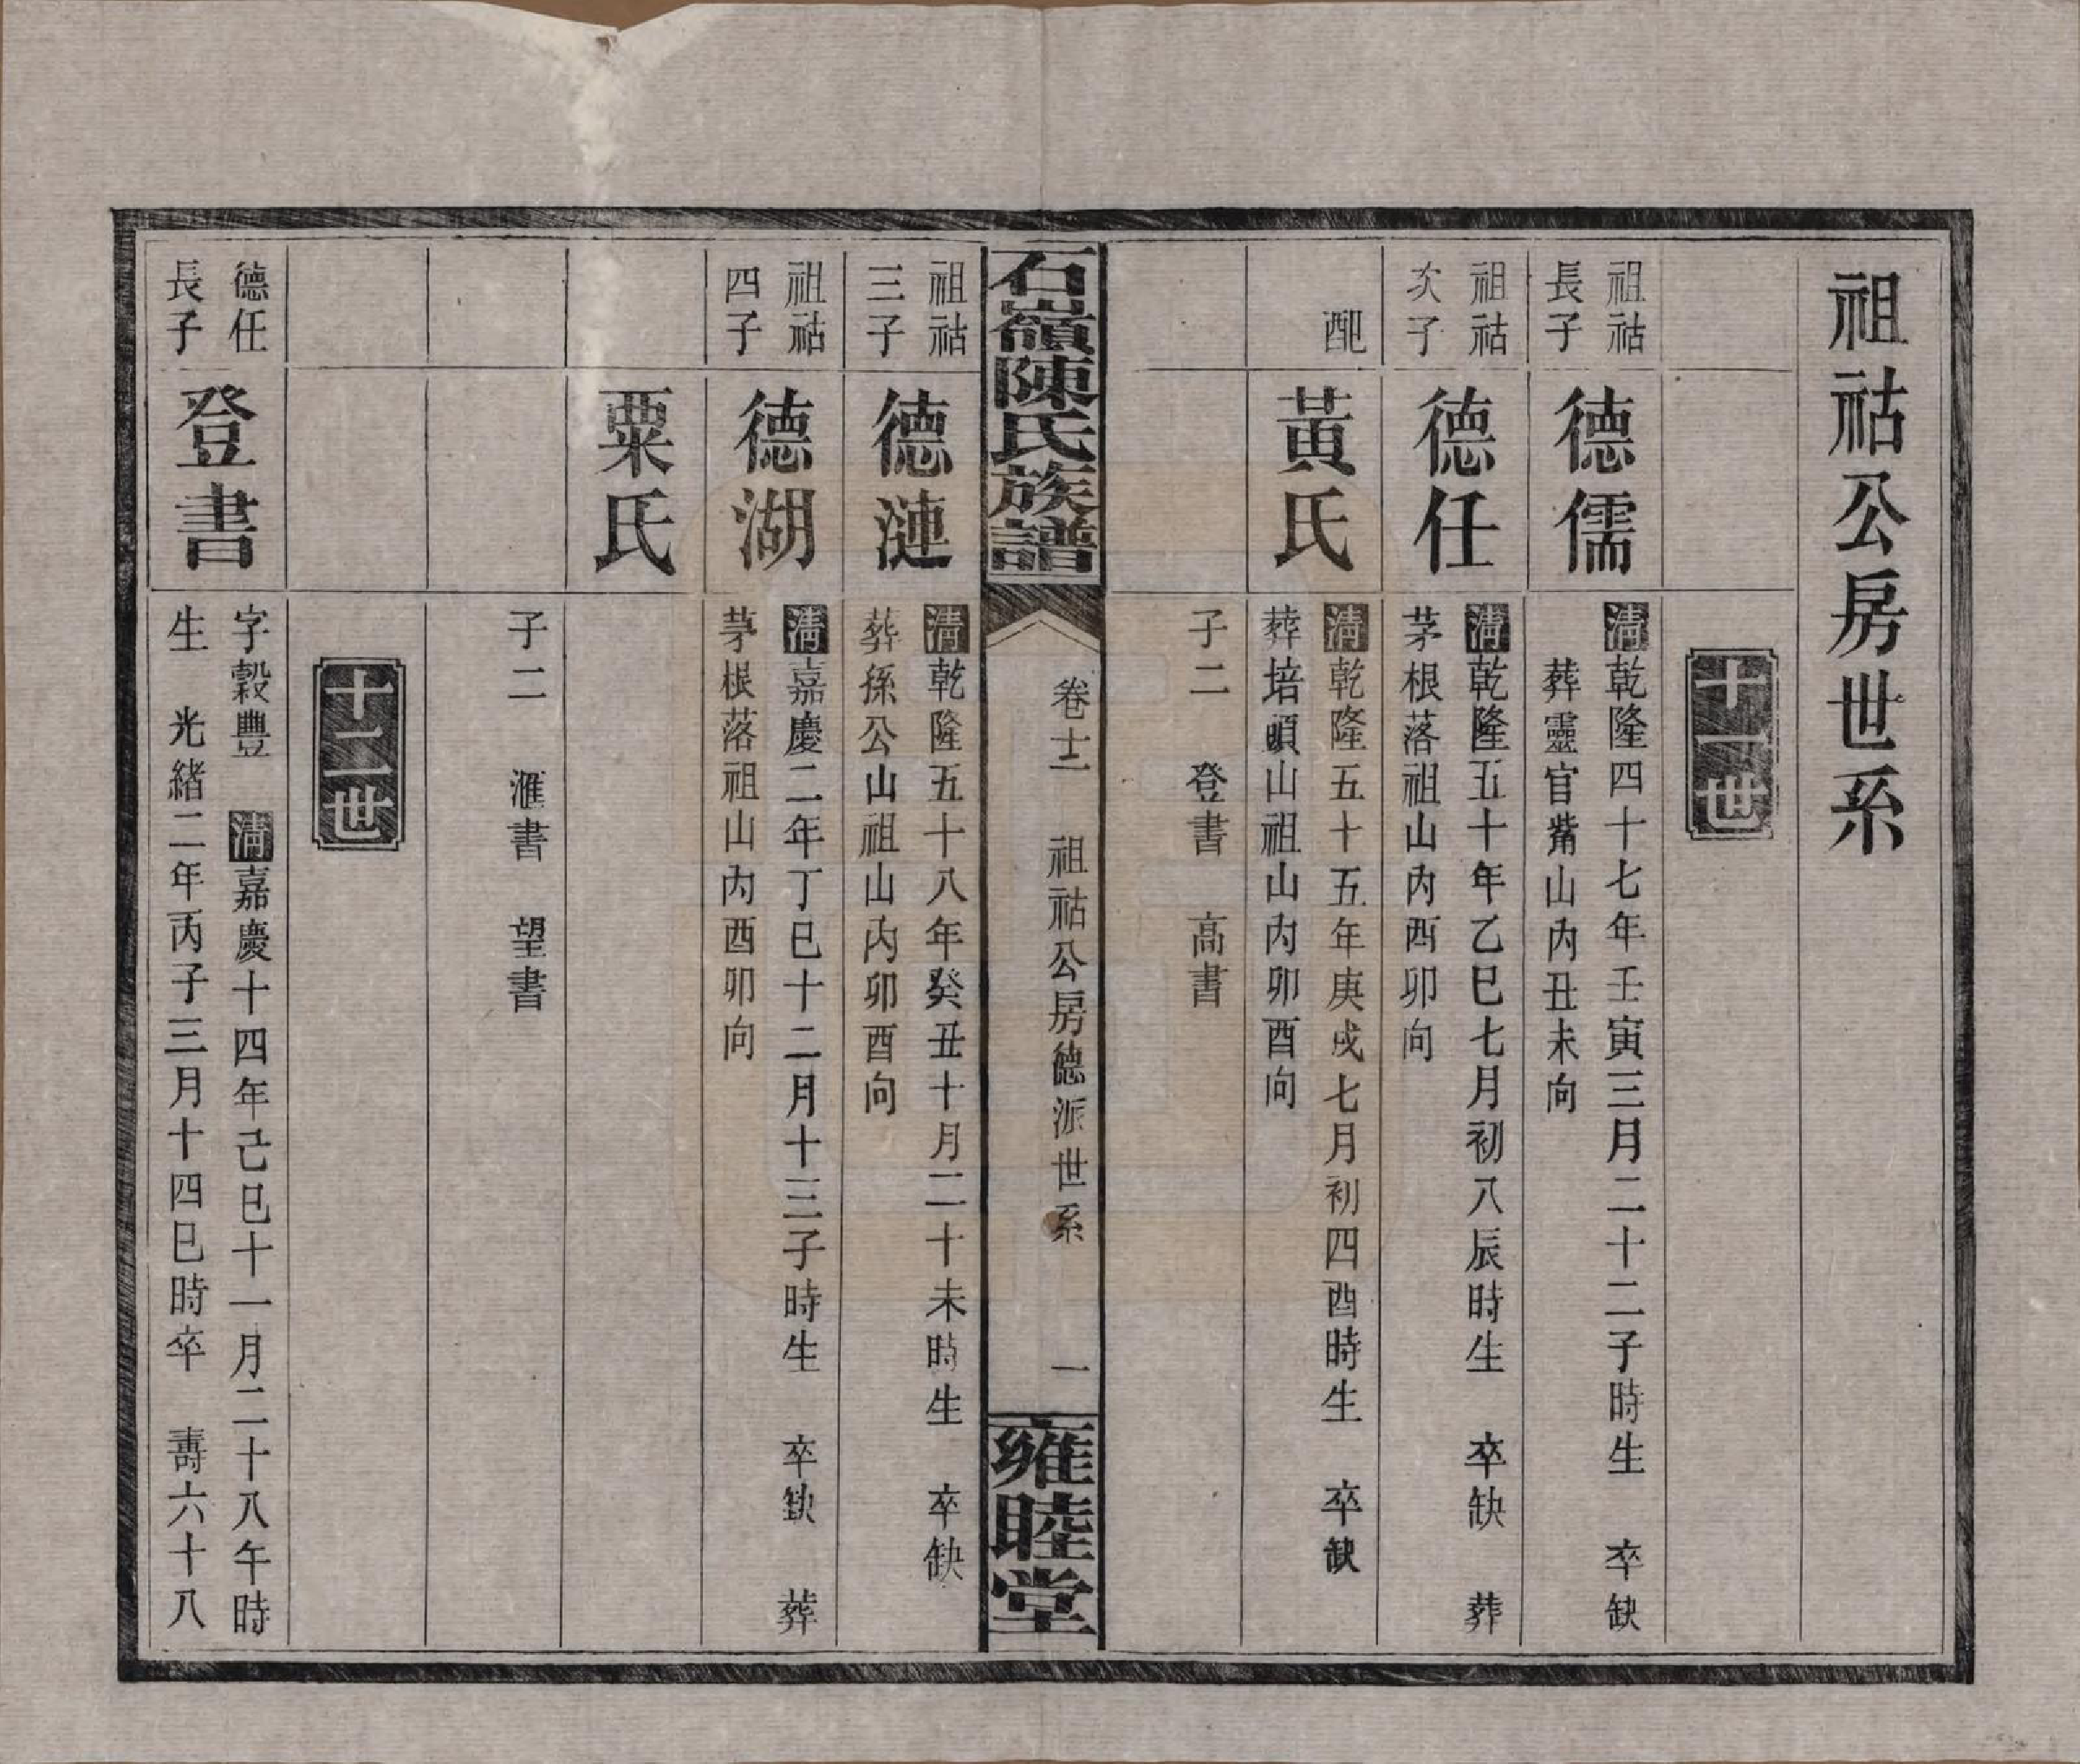 祖祜公房世系
十一世
祖祜
長子
德儒
清乾隆四十七年壬寅三月二十二子時生　卒缺
葬靈官觜山內丑未向
祖祜
次子
德任
清乾隆五十年乙巳七月初八辰時生　卒缺　葬
茅根落祖山內酉卯向
配
黃氏
清乾隆五十五年庚戌七月初四酉時生　卒缺
葬培頭山祖山內卯酉向
子二　登書　高書
石嶺陳氏族譜
卷十二　祖祜公房德派世系　一
雍睦堂
祖祜
三子
德漣
清乾隆五十八年癸丑十月二十未時生　卒缺
葬孫公山祖山內卯酉向
祖祜
四子
德湖
清嘉慶二年丁巳十二月十三子時生　卒缺　葬
茅根落祖山內酉卯向
粟氏
子二　滙書　望書
十二世
德任
長子
登書
字穀豐　清嘉慶十四年己巳十一月二十八午時
生　光緒二年丙子三月十四巳時卒　壽六十八